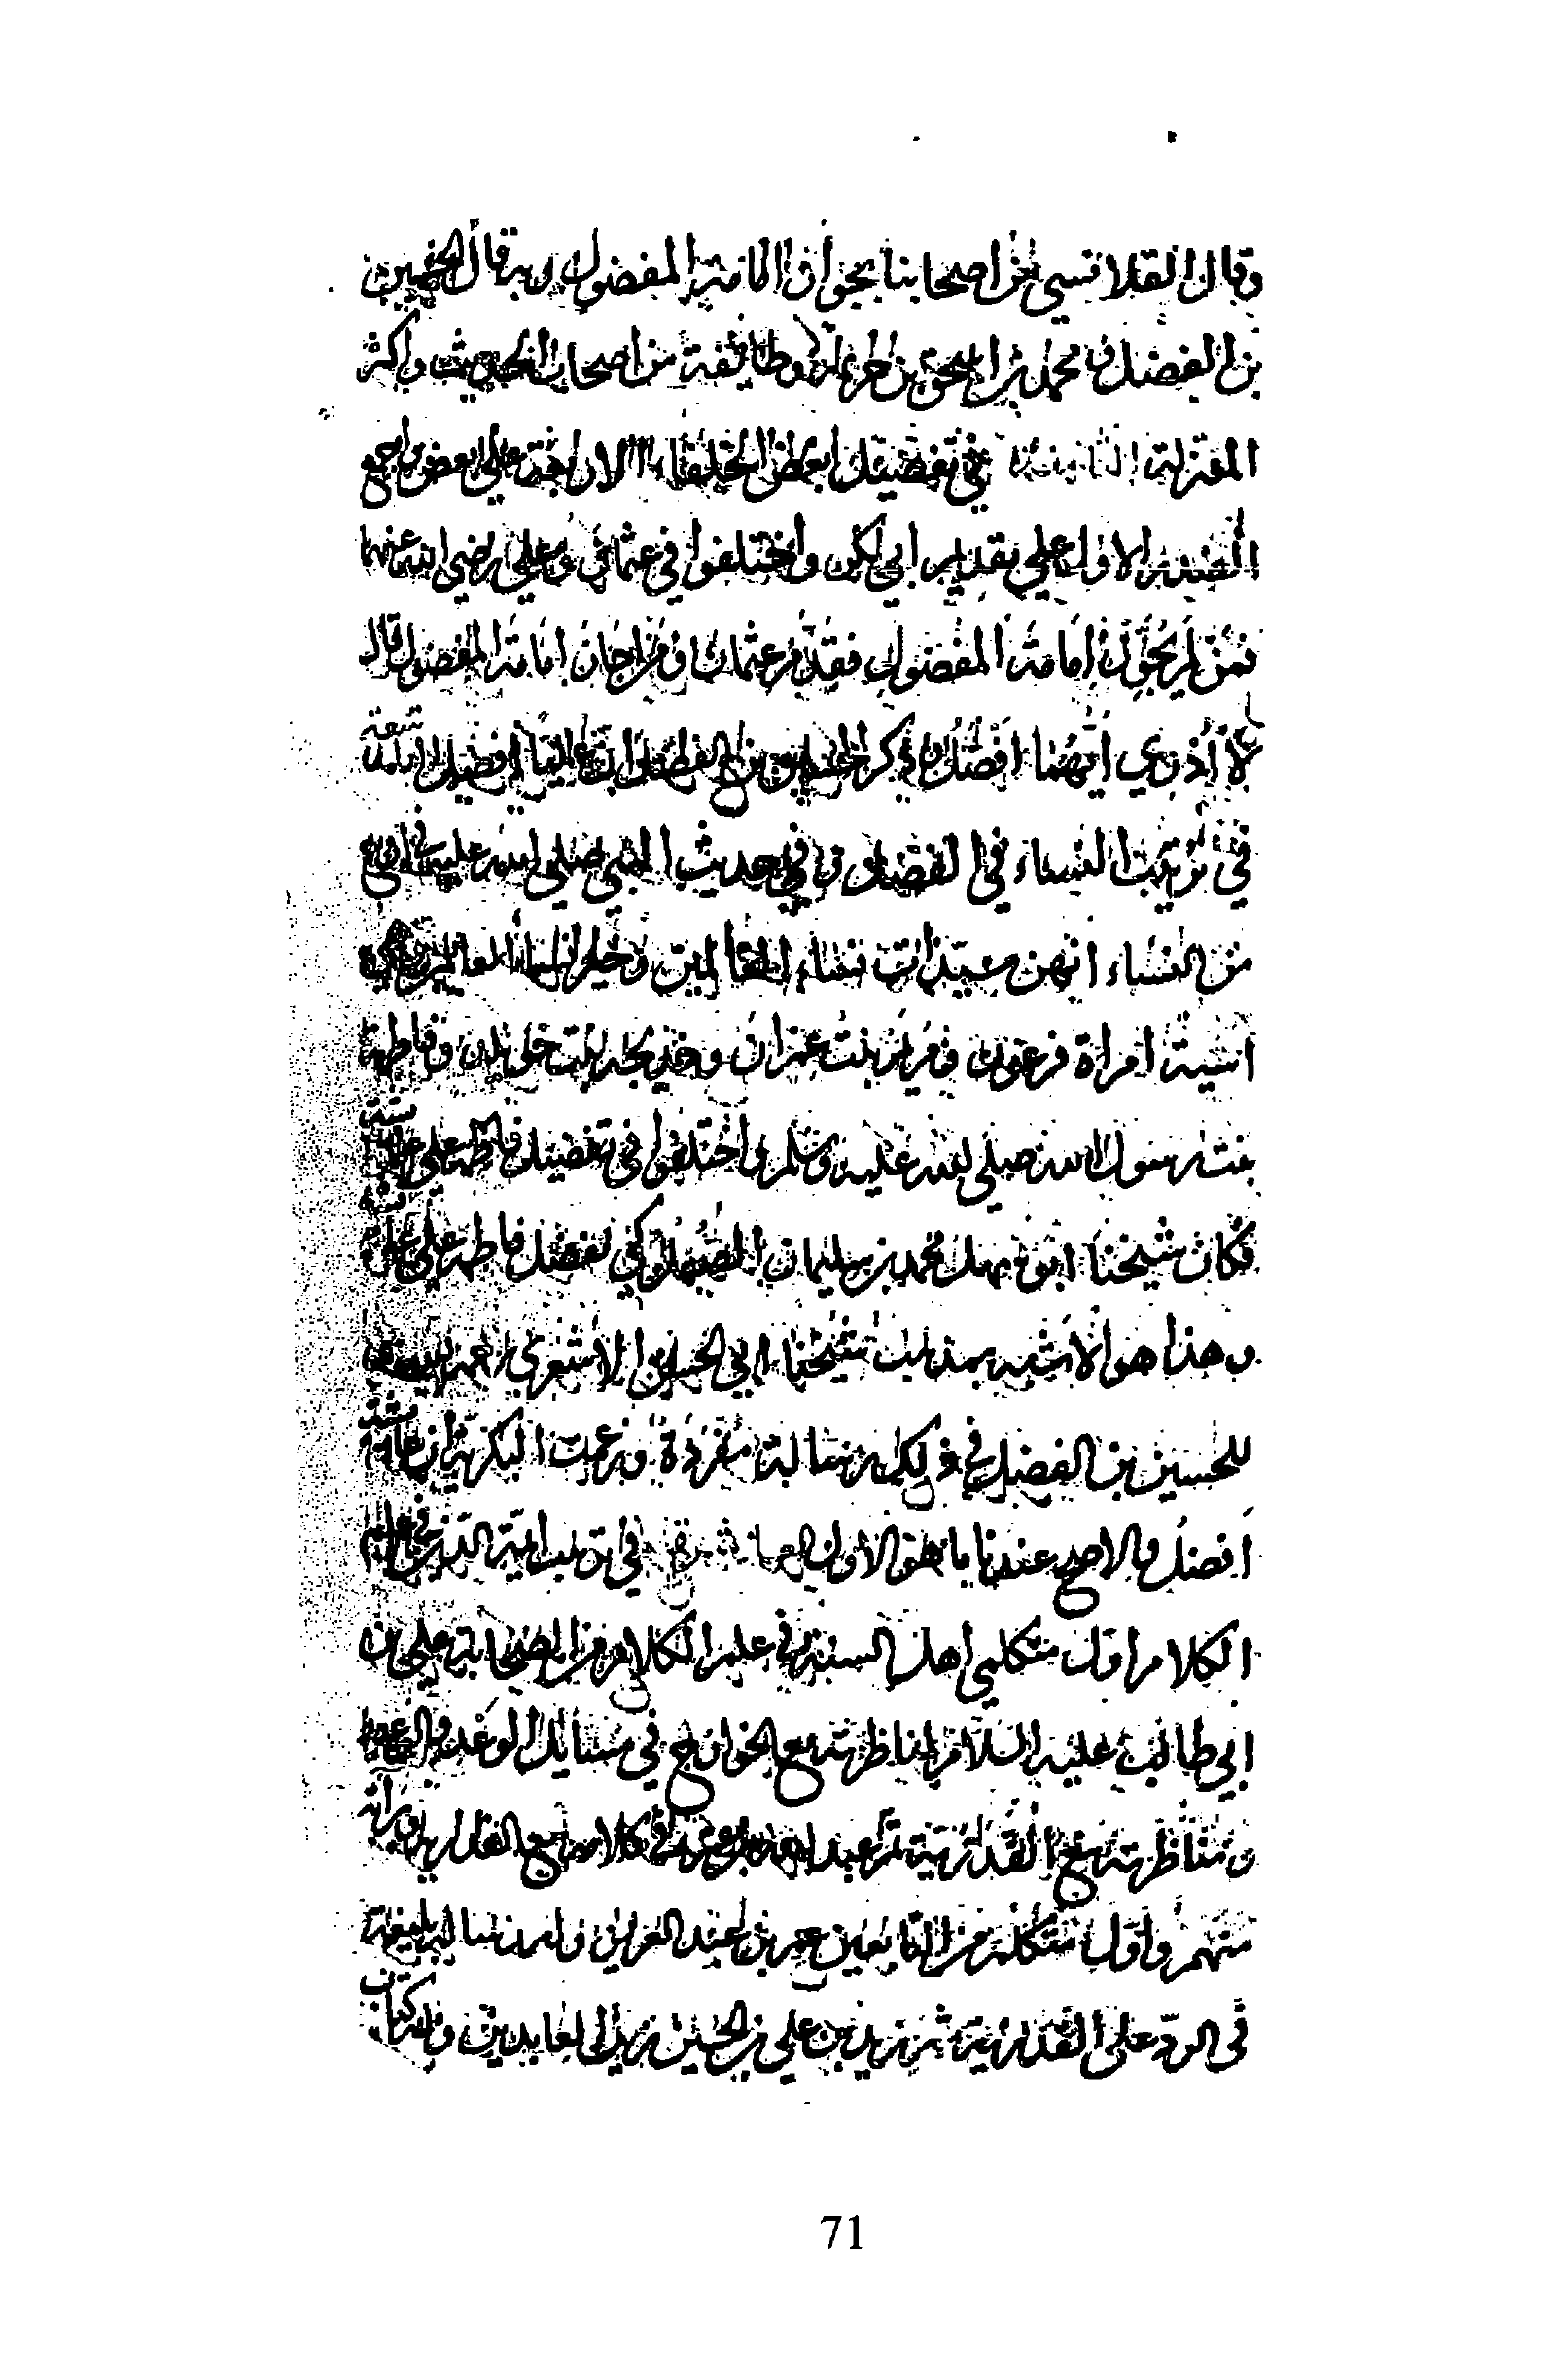 وقال القلانسي من اصحابنا بجواز امامة المفضول وبه قال الحسين
بن الفضل و محمد بن اسحق بن خزيمة وطائفة من اصحاب الحديث واكثر
المعتزلة الثامنة في تفضيل بعض الخلفاء الاربعة على بعض اجمع
الصدر الاول على تقديم ابي بكر واختلفوا في عثمان وعلي رضي الله عنهما
فمن لم يجوز امامة المفضول فقدم عثمان ومن اجاز امامة المفضول قال
لا أدري أيهما افضل وذكر الحسين بن الفضل ان عليا افضل التاسعة
في ترتيب النساء في الفضل وفي حديث النبي صلى الله عليه ان اربع
من النساء انهن سيدات نساء العالمين وخير نساء العالمين
اسية امراة فرعون ومريم بنت عمران وخديجة بنت خويلد وفاطمة
بنت رسول الله صلى الله عليه وسلم واختلفوا في تفضيل فاطمة على عائشة
فكان شيخنا ابو سهل محمد بن سليمان الصعلوكي يفضل فاطمة على عائشة
وهذا هو الاشبه بمذهب شيخنا ابي الحسن الاشعري رحمه الله
للحسين بن الفضل في ذلك رسالة مفردة وزعمت البكرية ان عائشة
افضل والاصح عندنا ما هو الاول العاشرة في ترتيب ائمة الدين في علم
الكلام اول متكلمي اهل السنة في علم الكلام من الصحابة علي بن
ابي طالب عليه السلام لمناظرته مع الخوارج في مسائل الوعد والوعيد
ومناظرته مع القدرية ثم عبد الله بن عمر في كلامه مع القدرية وبراته
منهم واول متكلمة من التابعين عمر بن عبد العزيز وله رسالة بليغة
في الرد على القدرية ثم زيد بن علي بن الحسين زين العابدين وله كتاب
71